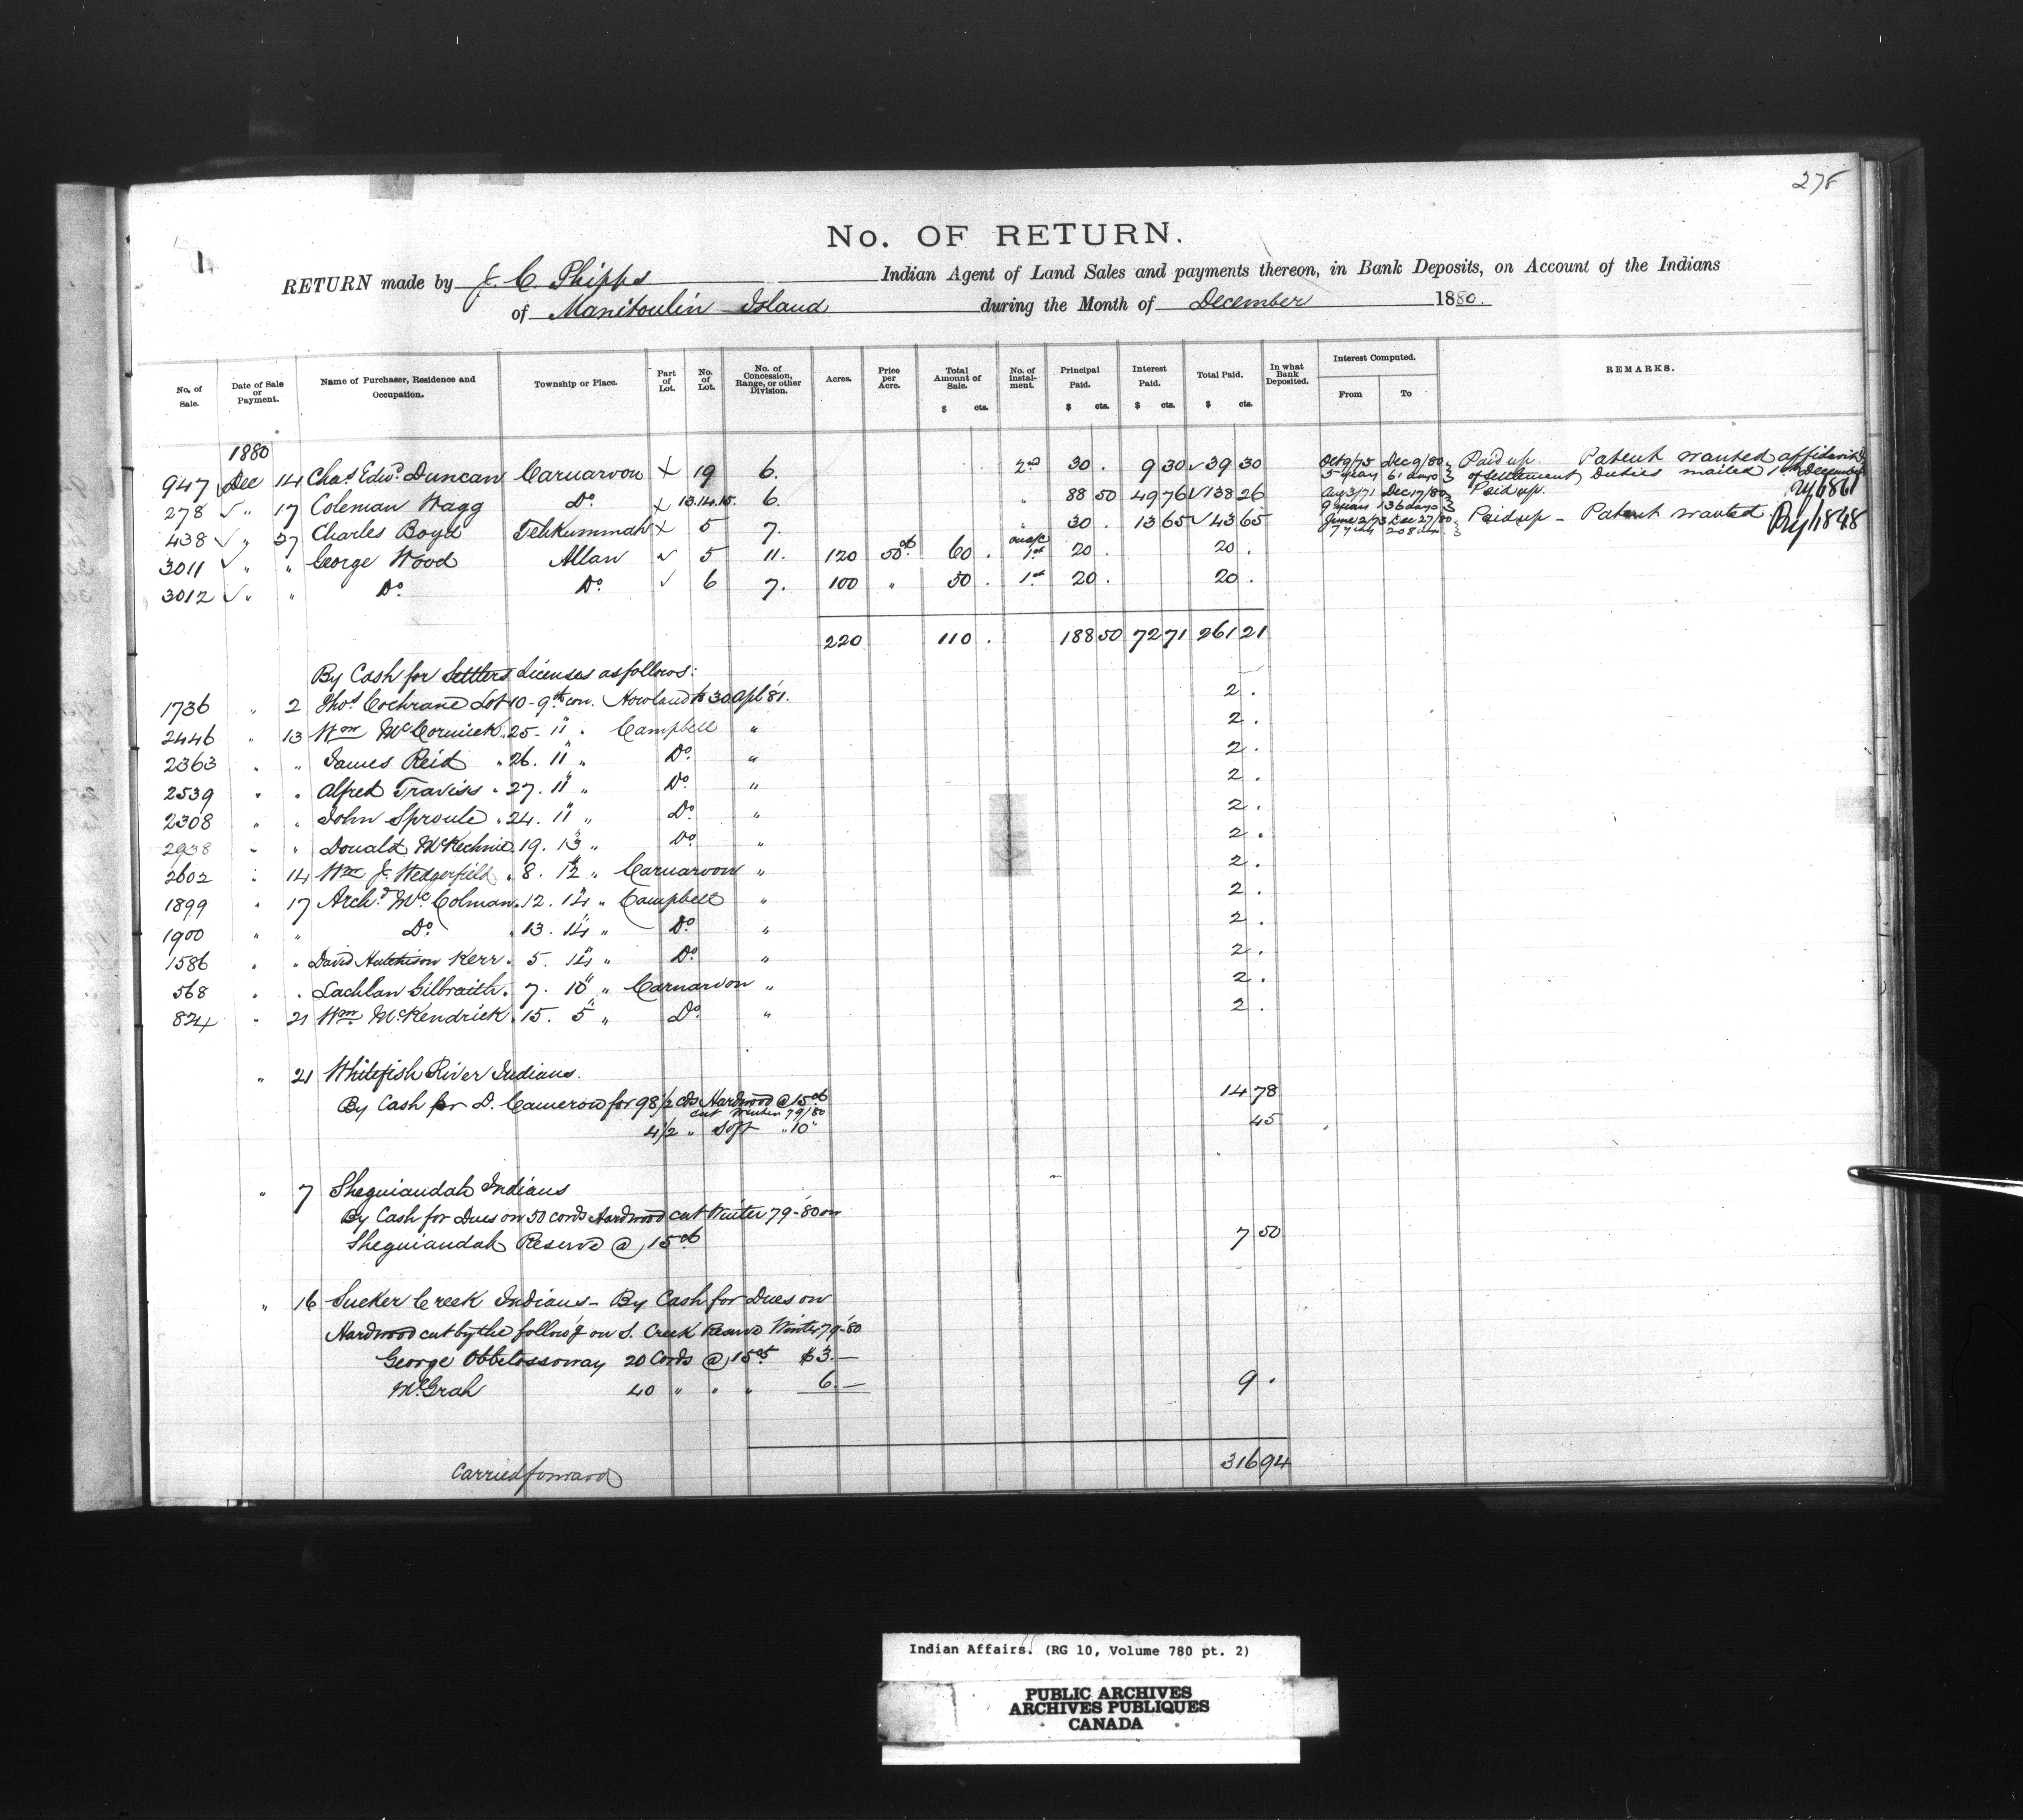 278
No. OF RETURN.
1.
RETURN made by J. C. Phipps Indian Agent of Land Sales and payments thereon, in Bank Deposits, on Account of the Indians
of Manitoulin Island during the Month of December 1880.
No. of Sale. Date of Sale or Payment. Name of Purchaser, Residence and Occupation. Township or Place. Part of Lot. No. of Lot. No. of Concession, Range, or other Division. Acres. Price per Acre. Total Amount of Sale. $ cts. No. of Instalment. Principal Paid. $ cts. Interest Paid. $ cts. Total Paid. $ cts. In what Bank Deposited. Interest Computed. From To REMARKS.
1880
947 Dec 14 Chas Edwd. Duncan Carnarvon X 19 6. 2nd 30 . 9 30 ✓ 39 30 Oct 9/75 Dec 9/80 5 years 61 days Paid up. Patent wanted affidavit of settlement Duties mailed 1st December
278 ✓ " 17 Coleman Wagg Do X 13.14.15. 6. " 88 50 49 76 ✓ 138 26 Aug 3/71 Dec 17/80 9 years 136 days Paid up. 1861
438 ✓ " 27 Charles Boyd Tehkummah X 5 7. " 30 . 13 65 ✓ 43 65 June 2/73 Dec 27/80 7 years 208 days Paid up - Patent wanted. 1848
3011 ✓ " " George Wood Allan ✓ 5 11. 120 50cts 60 . on a/c 1st 20 . 20 .
3012 ✓ " " Do Do. ✓ 6 7. 100 " 50 . 1st 20 . 20 .
220 110 . 188 50 72 71 261 21
By Cash for Settlers Licenses as follows:
1736 " 2 Thos Cochrane Lot 10 - 9th con. Howland to 30 Apl '81. 2 .
2446 " 13 Wm McCormick " 25 - 11 " Campbell " 2 .
2363 " " James Reid " 26. 11 " Do. " 2 .
2539 " " Alfred Traviss " 27. 11 " Do. " 2 .
2308 " " John Sproule " 24. 11 " Do. " 2 .
2938 " " Donald McKechnie " 19. 13 " Do. " 2 .
2602 " 14 Wm J. Wedgerfield " 8. 12 " Carnarvon " 2 .
1899 " 17 Archd. McColman " 12. 14 " Campbell " 2 .
1900 " " Do. " 13. 14 " Do. " 2 .
1586 " " David Hutchison Kerr " 5. 14 " Do. " 2 .
568 " " Lachlan Gilbraith " 7. 10 " Carnarvon " 2 .
824 " 21 Wm McKendrick " 15. 5 " Do. " 2 .
" 21 Whitefish River Indians.
By Cash for D. Cameron for 98 1/2 cds Hardwood @ 15cts 14 78
cut Winter 79/80
4 1/2 " Soft " 10 " 45
" 7 Sheguiandah Indians
By Cash for Dues on 50 cords Hardwood cut Winter 79-'80 on
Sheguiandah Reserve @ 15cts 7 50
" 16 Sucker Creek Indians - By Cash for Dues on
Hardwood cut by the follow'g on S. Creek Reserve Winter 79-'80
George Obbetossoway 20 Cords @ 15cts $3.—
McGrah 40 " " " 6.— 9 .
Carried forward 316 94
Indian Affairs. (RG 10, Volume 780 pt. 2)
PUBLIC ARCHIVES
ARCHIVES PUBLIQUES
CANADA